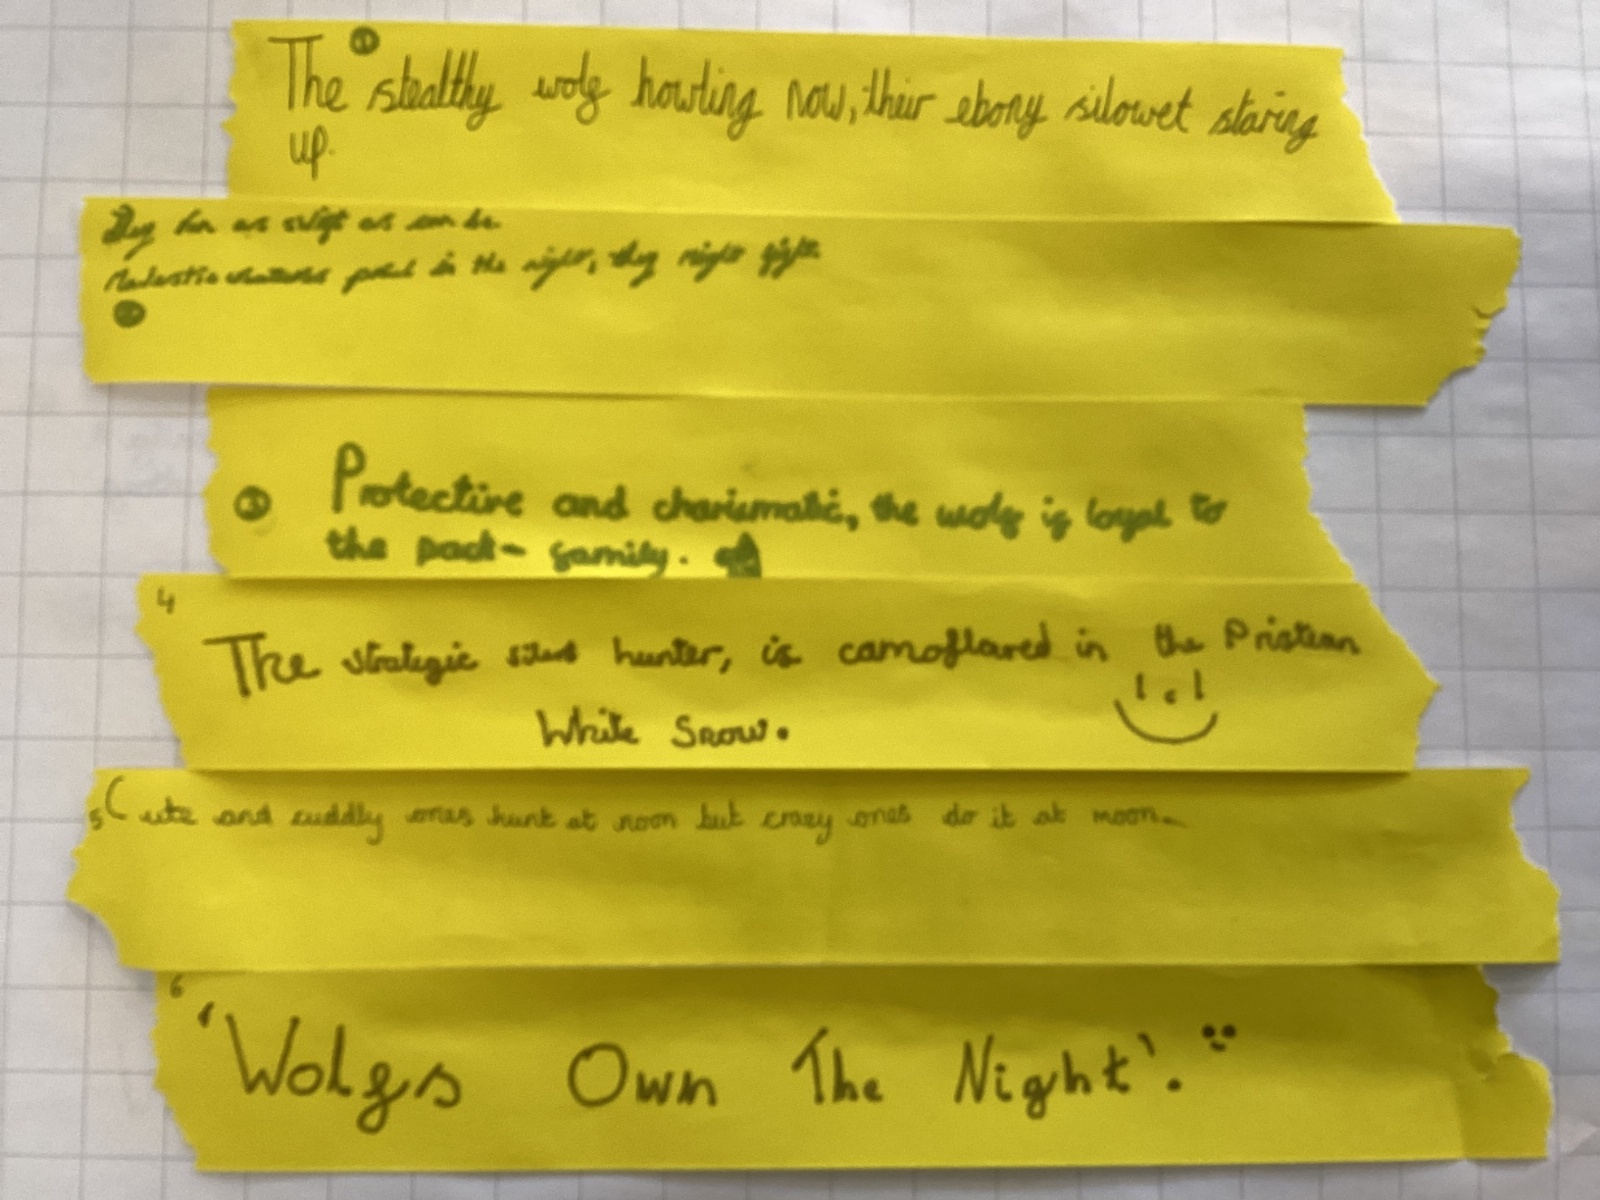 1
The stealthy wolf howling now, their ebony silowet staring
up.
They run as swift as can be.
prowl in the night, they might fight
2
3 Protective and charismatic, the wolf is loyal to
the pack- family.
4
The strategic hunter, is camoflared in the Pristean
White Snow.
5 Cute and cuddly ones hunt at noon but crazy ones do it at moon.
6
'Wolfs Own The Night'.